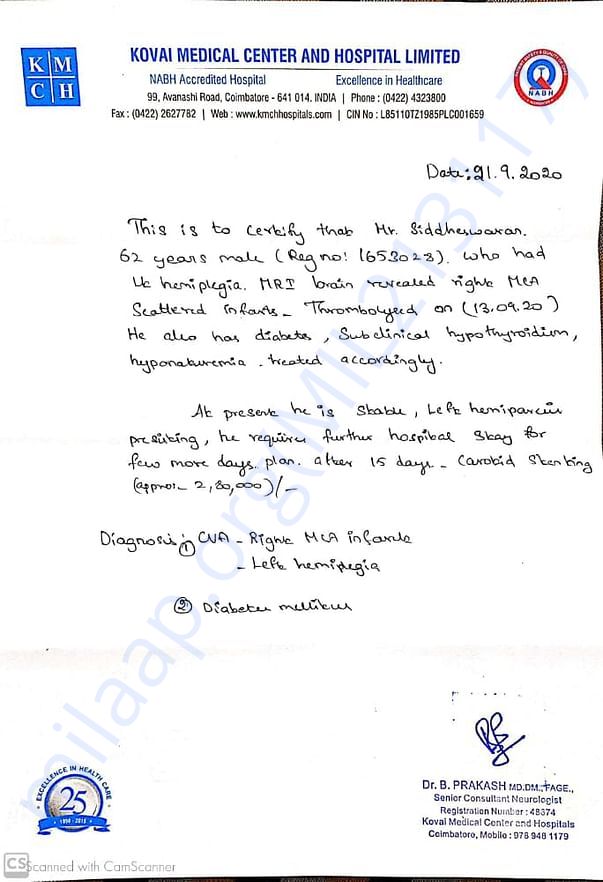 K M
C H
KOVAI MEDICAL CENTER AND HOSPITAL LIMITED
NABH Accredited Hospital Excellence in Healthcare
99, Avanashi Road, Coimbatore - 641 014. INDIA | Phone : (0422) 4323800
Fax : (0422) 2627782 | Web : www.kmchhospitals.com | CIN No : L85110TZ1985PLC001659
NABH
Date: 21.9.2020
This is to certify that Mr. Siddheswaran.
62 years male (Reg no: 1653023). who had
Lt hemiplegia. MRI brain revealed right MCA
Scattered infarts - Thrombolysed on (13.09.20)
He also has diabetes, Subclinical hypothyroidism,
hyponaturemia. treated accordingly.
At present he is stable, Left hemiparesis
presisting, he requires further hospital stay for
few more days. plan. after 15 days - Carotid Stenting
(approx - 2,80,000)/-
Diagnosis: ① CVA - Right MCA infarcts
- Left hemiplegia
② Diabetes mellitus
milaap.org(MIL213117)
EXCELLENCE IN HEALTH CARE
25
Dr. B. PRAKASH MD.DM.,FAGE.,
Senior Consultant Neurologist
Registration Number : 48374
Kovai Medical Center and Hospitals
Coimbatore, Mobile : 978 948 1179
CS Scanned with CamScanner